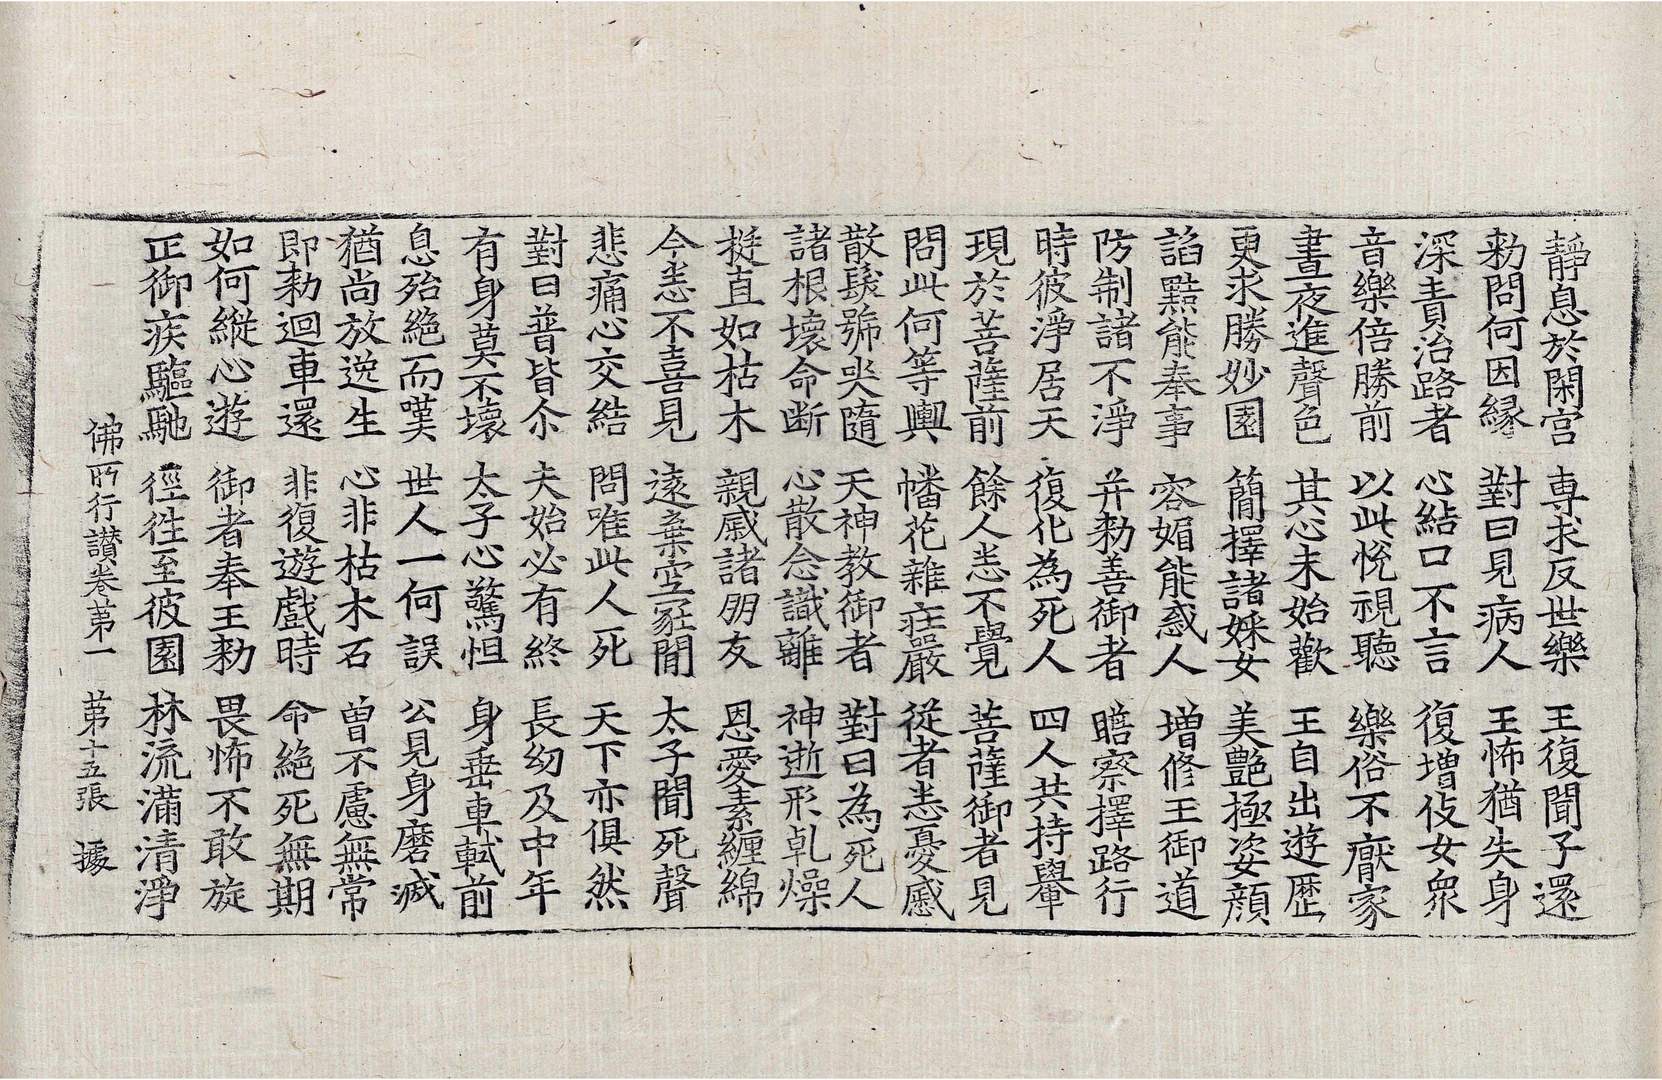 靜息於閑宮 専求反世樂 王復聞子還
勑問何因縁 對曰見病人 王怖猶失身
深責治路者 心結口不言 復增伎女衆
音樂倍勝前 以此悅視聽 樂俗不猒家
晝夜進聲色 其心未始歡 王自出遊歷
更求勝妙園 簡擇諸婇女 美艷極姿顔
諂黠能奉事 容媚能惑人 增修王御道
防制諸不淨 并勑善御者 瞻察擇路行
時彼淨居天 復化為死人 四人共持轝
現於菩薩前 餘人悉不覺 菩薩御者見
問此何等輿 幡花雜莊嚴 從者悉憂慼
散髮號哭隨 天神教御者 對曰為死人
諸根壞命断 心散念識離 神逝形乹燥
挺直如枯木 親戚諸朋友 恩愛素纏綿
今悉不喜見 遠棄空冢間 太子聞死聲
悲痛心交結 問唯此人死 天下亦俱然
對曰普皆尒 夫始必有終 長幼及中年
有身莫不壞 太子心驚怛 身垂車軾前
息殆絕而嘆 世人一何誤 公見身磨滅
猶尚放逸生 心非枯木石 曾不慮無常
即勑迴車還 非復遊戲時 命絕死無期
如何縱心遊 御者奉王勑 畏怖不敢旋
正御疾驅馳 徑徃至彼園 林流滿清淨
佛所行讃卷第一 第十五張 據